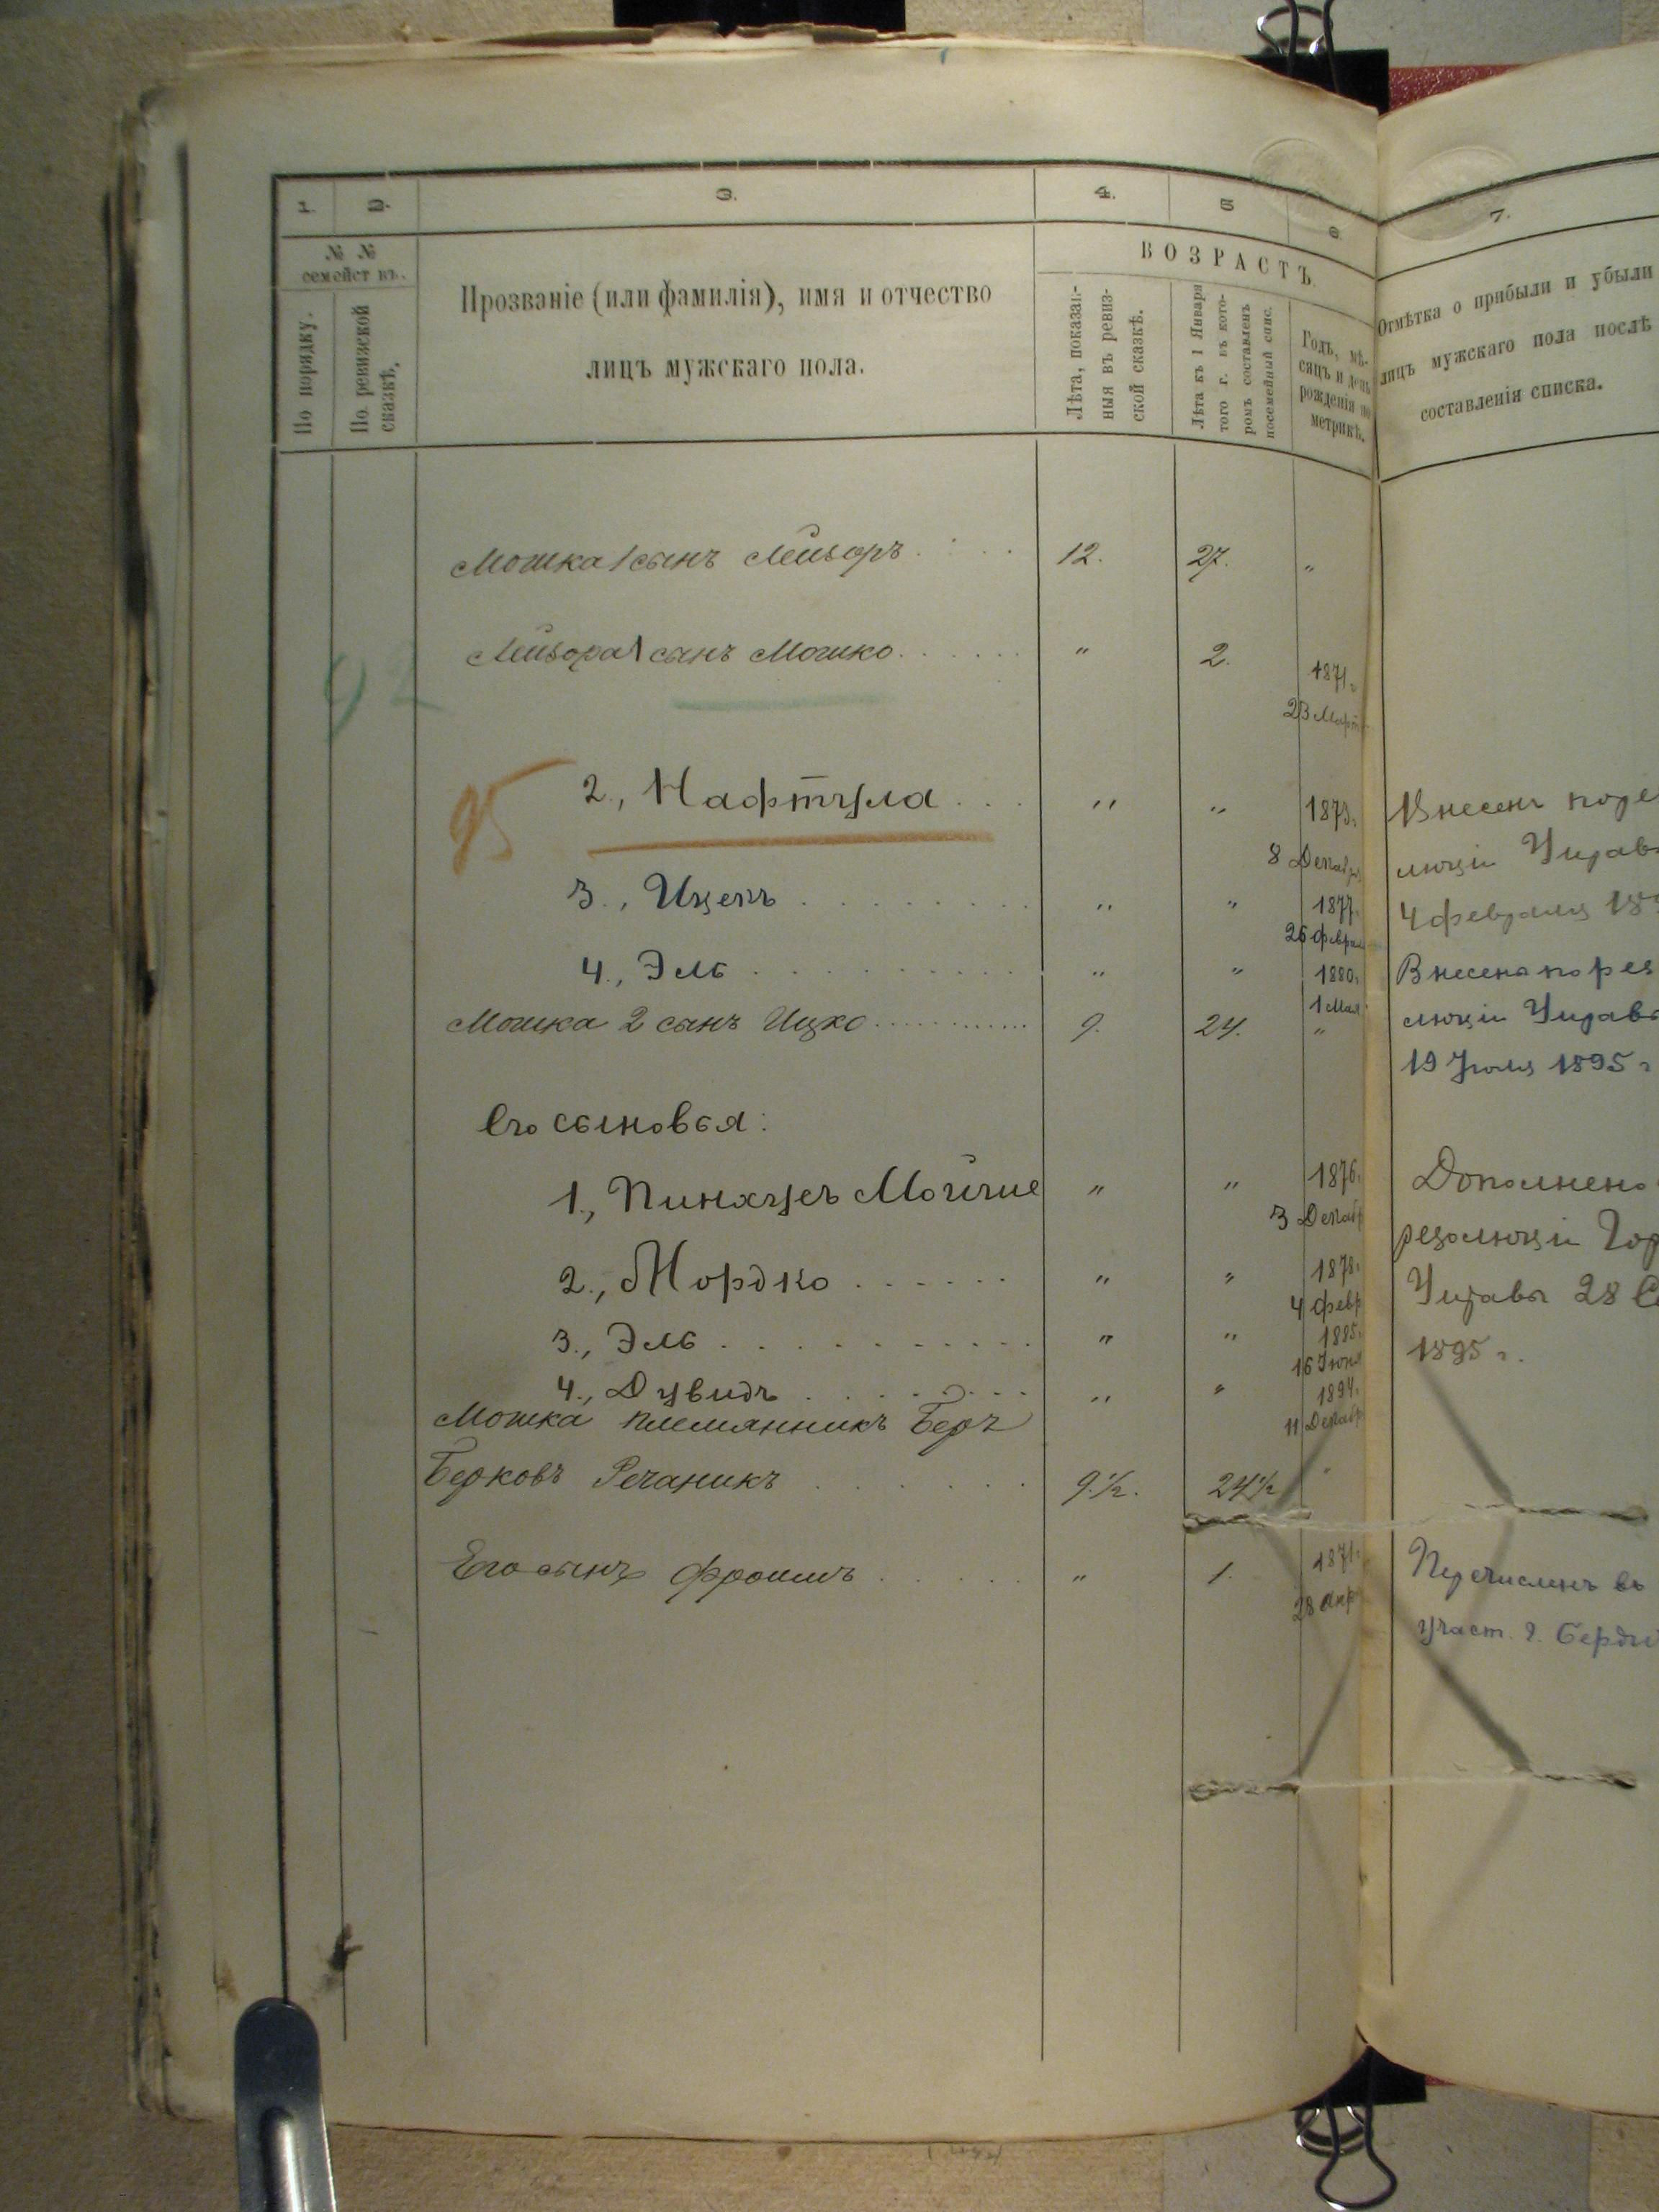 1. 2. 3. 4. 5 6 7.
№ № семейст въ.
По порядку.
По ревизской сказкѣ.
Прозваніе (или фамилія), имя и отчество
лицъ мужскаго пола.
ВОЗРАСТЪ.
Лѣта, показан-
ныя въ ревиз-
ской сказкѣ.
Лѣта къ 1 Января
того г. въ кото-
ромъ составленъ
посемейный спис.
Годъ, мѣ-
сяцъ и день
рожденія по
метрикѣ.
Отмѣтка о прибыли и убыли
лицъ мужскаго пола послѣ
составленія списка.
Мошка 1 сынъ Лейзоръ 12. 27. "
Лейзора 1 сынъ Мошко " 2. 1871г
23 Март
92
95
2., Нафтула " " 1873. Внесенъ по ре
8 Декабр люціи Управ
3., Ицекъ " " 1877. 4 февраля 18
26 Феврал
4., Эль " " 1880. Внесена по рез
1 Мая
Мошка 2 сынъ Ицко 9. 24. " люціи Управ
19 Іюля 1895 г
Его сыновья:
1., Пинхусъ Мойше " " 1876. Дополнено
3 Декабр резолюціи Гор
2., Мордко " " 1878.
4 февр Управы 28 С
3., Эль " " 1885. 1895 г.
16 Іюня
4., Дувидъ " " 1894.
11 Декабр
Мошка племянникъ Беръ
Берковъ Речаникъ 9 1/2. 24 1/2 "
Его сынъ Фроимъ " 1. 1871. Перечисленъ въ
28 Апр
участ. г. Берди